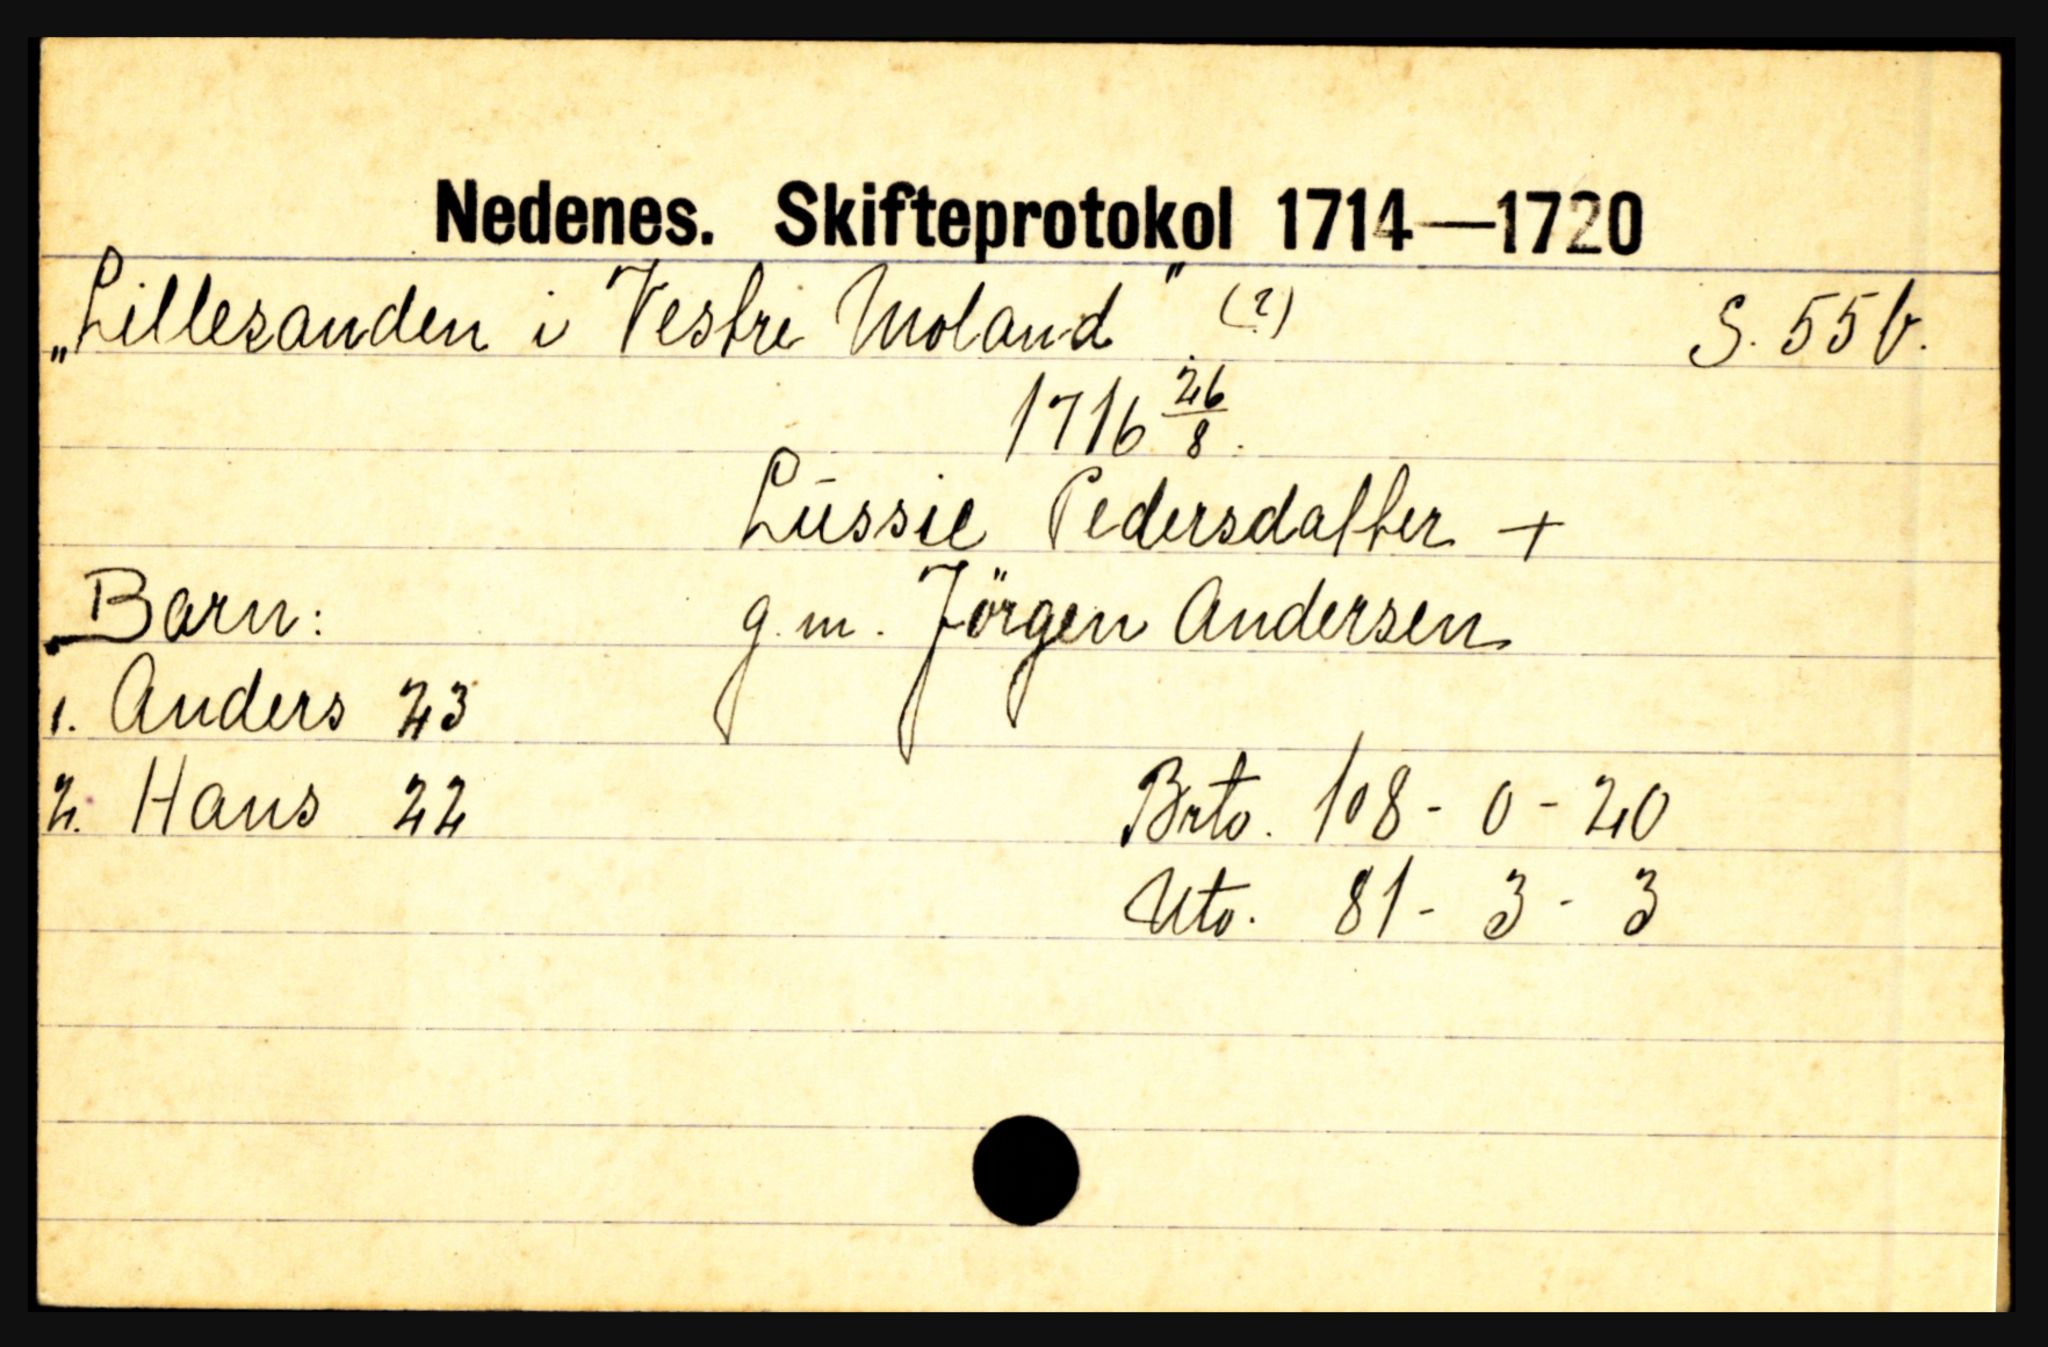 Nedenes. Skifteprotokol 1714—1720
„Lillesanden i Vestre Moland" (?) S. 55 b.
1716 26/8.
Lüssie Pedersdatter +
Barn: g. m. Jörgen Andersen
1. Anders 23
2. Hans 22 Brto. 108 - 0 - 20
Nto. 81 - 3 - 3